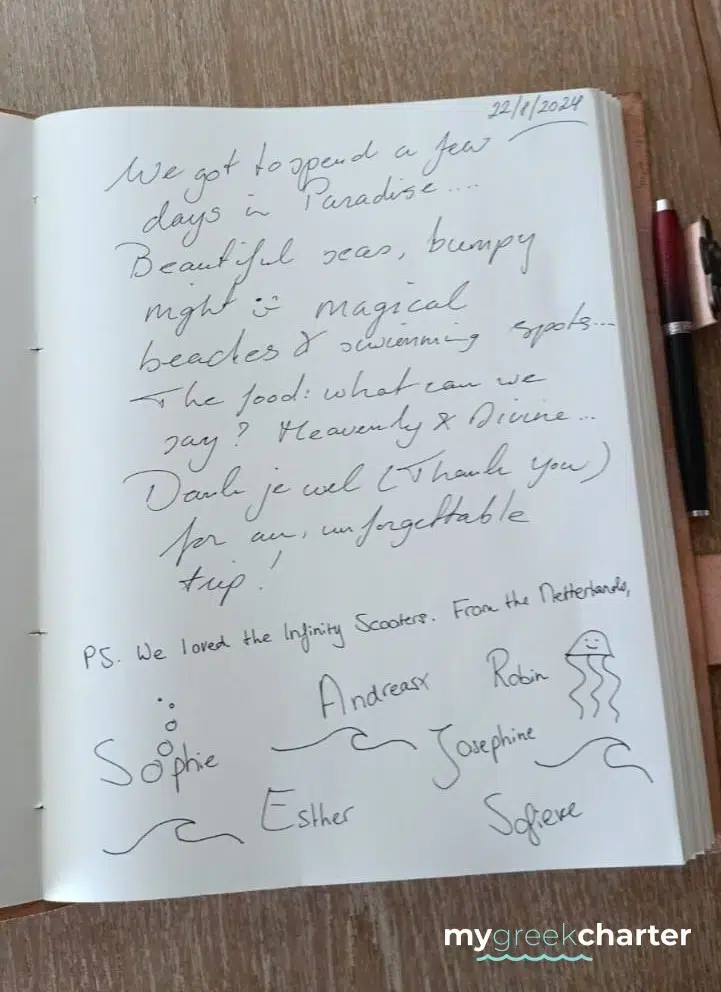 22/8/2024
We got to spend a few
days in Paradise....
Beautiful seas, bumpy
night :) magical
beaches & swimming spots...
The food: what can we
say? Heavenly & Divine...
Dank je wel (Thank you)
for an, unforgettable
trip!
PS. We loved the Infinity Scooters. From the Netherlands,
Andreas
Robin
Sophie
Josephine
Esther
mygreekcharter